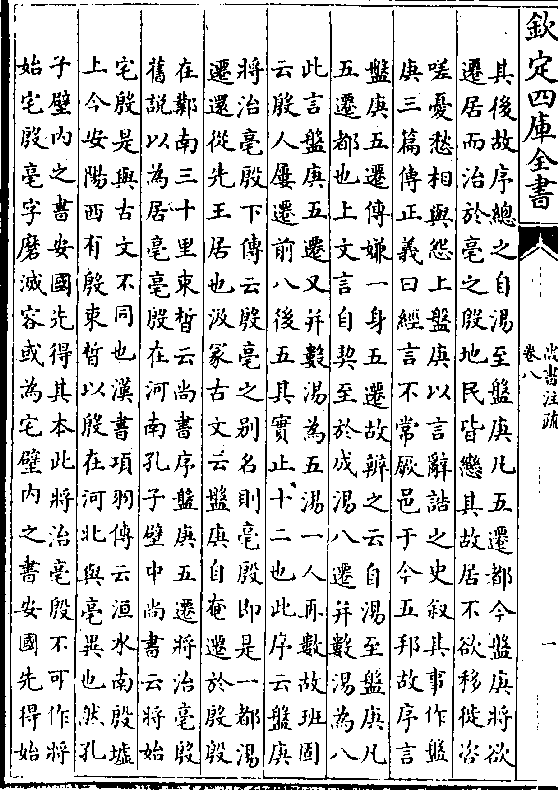 欽定四庫全書
尚書注疏
卷八
一
其後故序總之自湯至盤庚凡五遷都今盤庚將欲
遷居而治於亳之殷地民皆戀其故居不欲移徙咨
嗟憂愁相與怨上盤庚以言辭誥之史叙其事作盤
庚三篇傳正義曰經言不常厥邑于今五邦故序言
盤庚五遷傳嫌一身五遷故辨之云自湯至盤庚凡
五遷都也上文言自契至於成湯八遷并數湯為八
此言盤庚五遷又并數湯為五湯一人再數故班固
云殷人屢遷前八後五其實止十二也此序云盤庚
將治亳殷下傳云殷亳之别名則亳殷即是一都湯
遷還從先王居也汲冢古文云盤庚自奄遷於殷殷
在鄴南三十里束晳云尚書序盤庚五遷將治亳殷
舊說以為居亳亳殷在河南孔子壁中尚書云將始
宅殷是與古文不同也漢書項羽傳云洹水南殷墟
上今安陽西有殷束晳以殷在河北與亳異也然孔
子壁内之書安國先得其本此將治亳殷不可作將
始宅殷亳字磨滅容或為宅壁内之書安國先得始